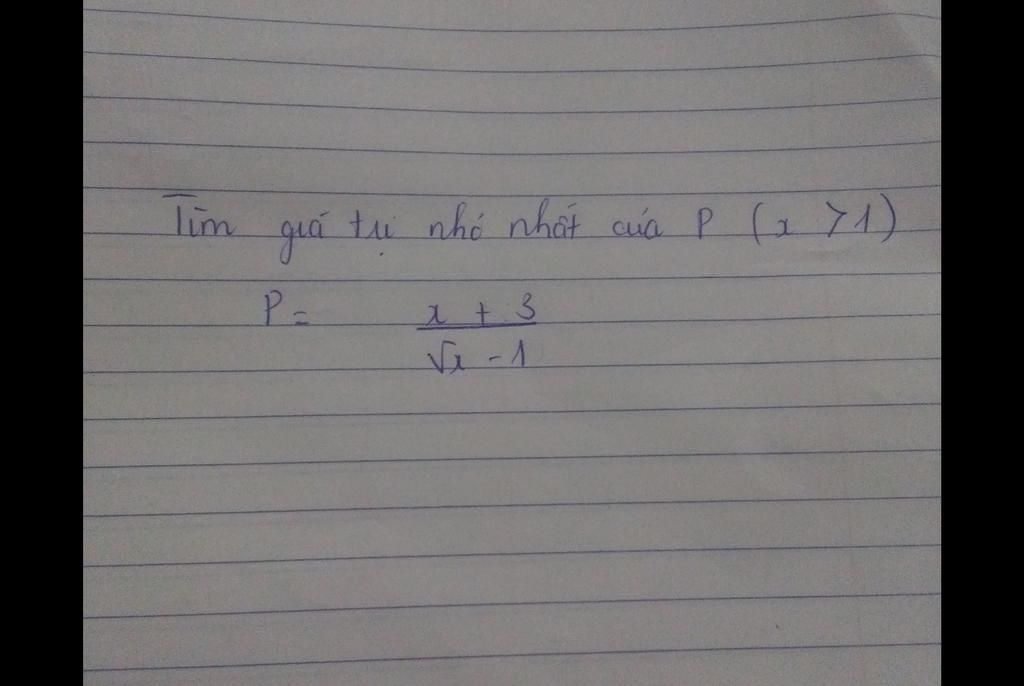 Tìm giá trị nhỏ nhất của P (x > 1)
P = x + 3
√x - 1